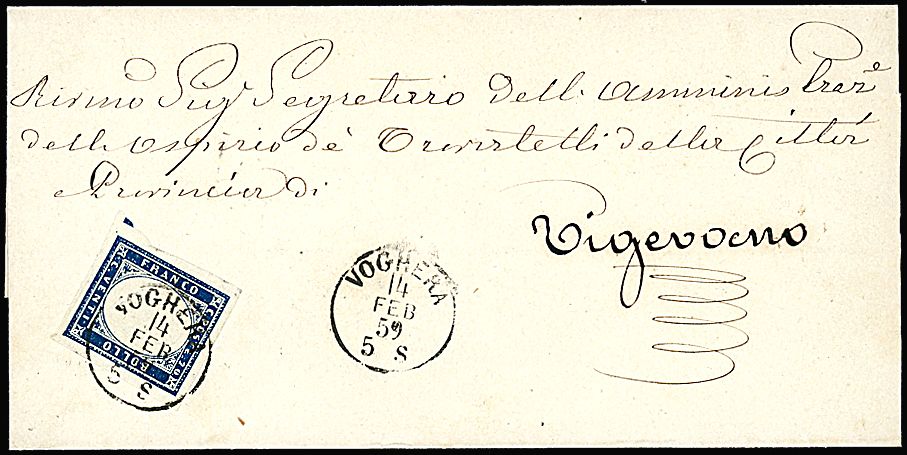 Rev.mo Sig.r Segretario dell' Amminis traz.e
dell' Ospizio de' Trovatelli della Città
e Provincia di
Vigevano
FRANCO
C. VENTI
C. 20
BOLLO
VOGHERA
14
FEB
5 S
VOGHERA
14
FEB
59
5 S